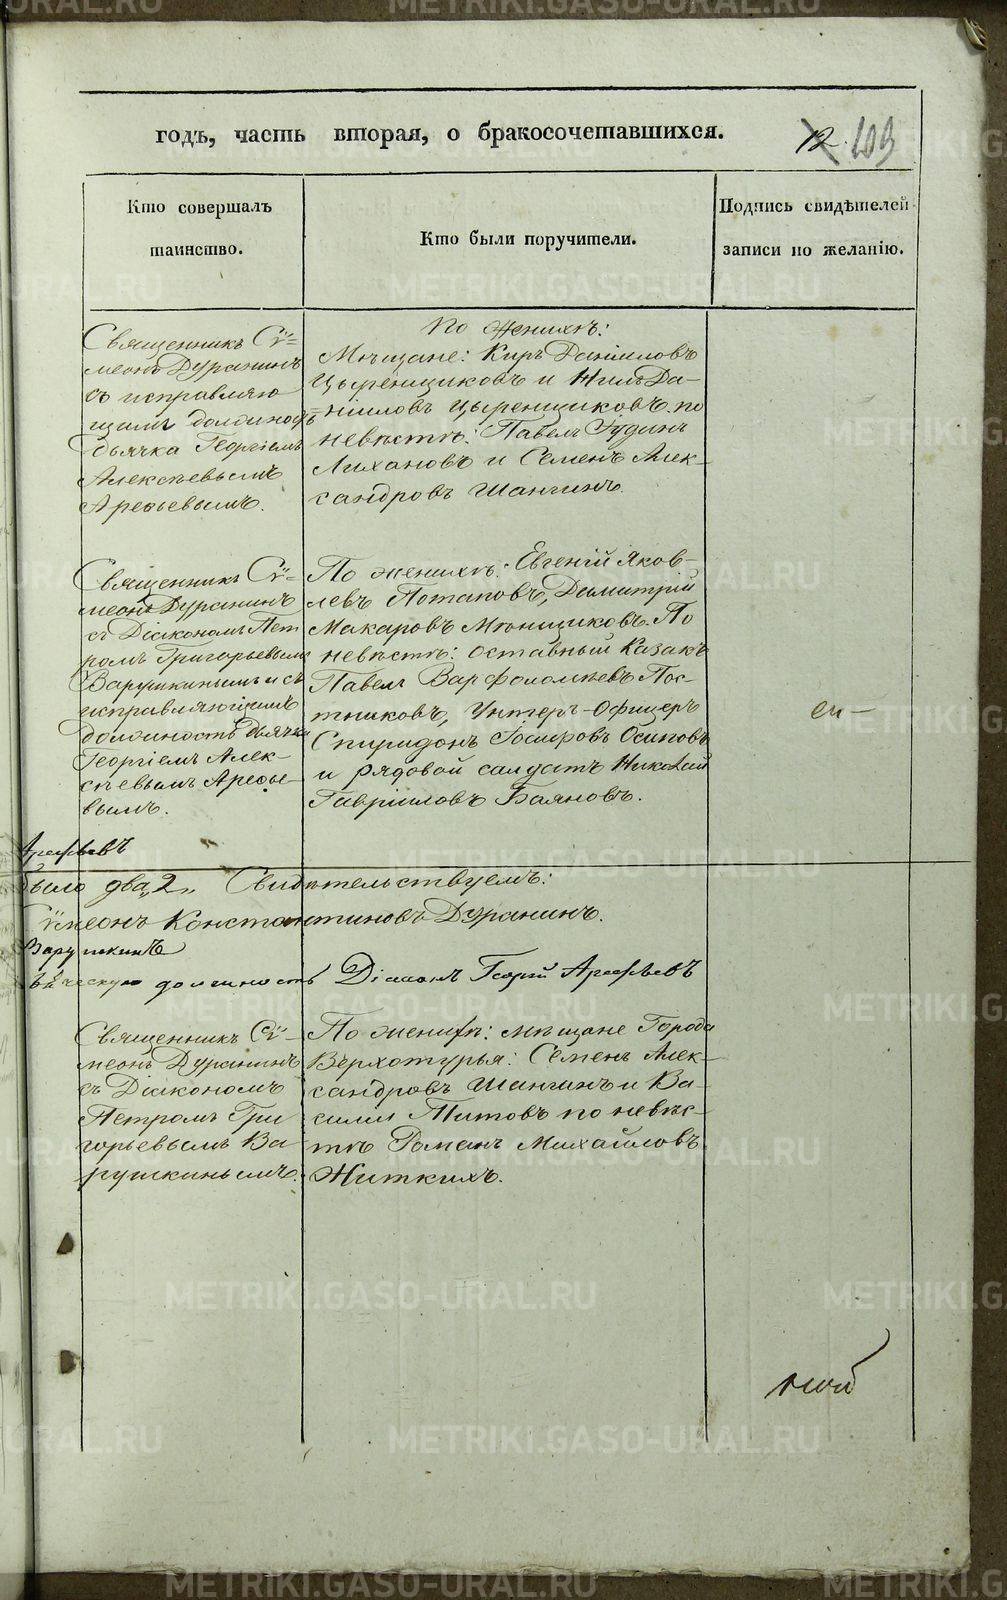 годъ, часть вторая, о бракосочетавшихся.
12. 103
Кто совершалъ
таинство.
Кто были поручители.
Подпись свидѣтелей
записи по желанію.
Священникъ Сѵ-
меонъ Дуранинъ
съ исправляю
щимъ должность
дьячка Георгіемъ
Алексѣевымъ
Арефьевымъ.
По женихѣ:
Мѣщане: Киръ Даніиловъ
Цыренщиковъ и Нилъ Да-
ніиловъ Цыренщиковъ. по
невѣстѣ: Павелъ Гудинъ
Лихановъ и Семенъ Алек-
сандровъ Шангинъ.
Священникъ Сѵ-
меонъ Дуранинъ
съ Діакономъ Пет
ромъ Григорьевымъ
Варушкинымъ и съ
исправляющимъ
должность дьячка
Георгіемъ Алек-
сѣевымъ Арефье-
вымъ.
По женихѣ: Евгеній Яков-
левъ Потаповъ, Димитрій
Макаровъ Мѣнщиковъ. По
невѣстѣ: оставный Казакъ
Павелъ Варфоломѣевъ Пос-
тниковъ, Унтеръ-Офицеръ
Спиридонъ Іосифовъ Осиповъ
и рядовой солдатъ Николай
Гавріиловъ Баяновъ.
Арефьевъ
было два „2„ Свидѣтельствуемъ:
Сѵмеонъ Константиновъ Дуранинъ.
Варушкинъ
ческую должность Діаконъ Георгій Арефьевъ
Священникъ Сѵ-
меонъ Дуранинъ
съ Діакономъ
Петромъ Гри
горьевымъ Ва-
рушкинымъ.
По женихѣ: мѣщане Города
Верхотурья: Семенъ Алек-
сандровъ Шангинъ и Ва-
силій Титовъ по невѣс-
тѣ Романъ Михайловъ
Житкихъ.
METRIKI.GASO-URAL.RU